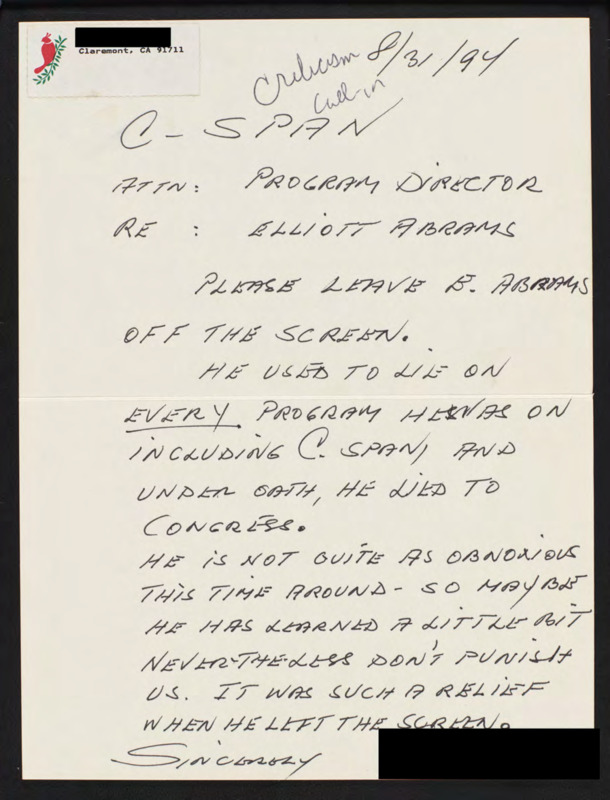 Claremont, CA 91711
Criticism 8/31/94
Call-in
C-SPAN
ATTN: PROGRAM DIRECTOR
RE : ELLIOTT ABRAMS
PLEASE LEAVE E. ABRAMS
OFF THE SCREEN.
HE USED TO LIE ON
EVERY PROGRAM HE WAS ON
INCLUDING C. SPAN, AND
UNDER OATH, HE LIED TO
CONGRESS.
HE IS NOT QUITE AS OBNOXIOUS
THIS TIME AROUND - SO MAYBE
HE HAS LEARNED A LITTLE BIT
NEVER-THE-LESS DON'T PUNISH
US. IT WAS SUCH A RELIEF
WHEN HE LEFT THE SCREEN.
SINCERELY